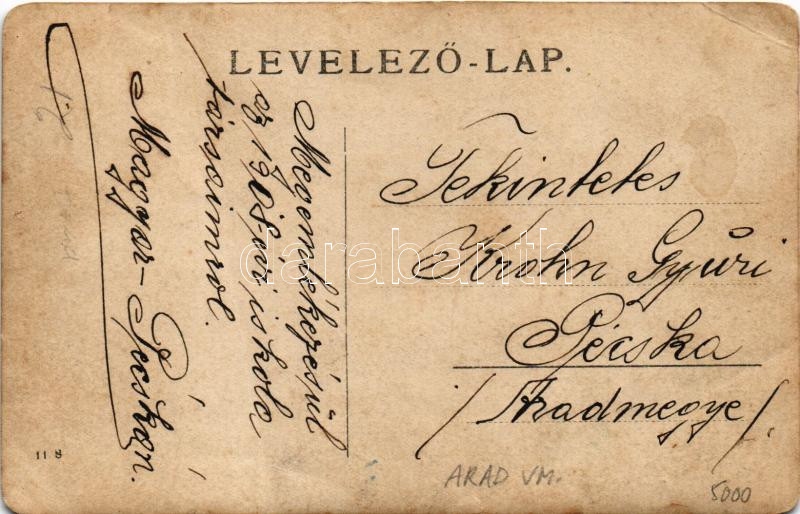 LEVELEZŐ-LAP.
Megemlékezésül
az 1908 évi iskola
társaimról.
Magyar-Pécskán.
Tekintetes
Krohn Gyuri
Pécska
/Aradmegye/.
11 8
ARAD VM.
5000
darabanth